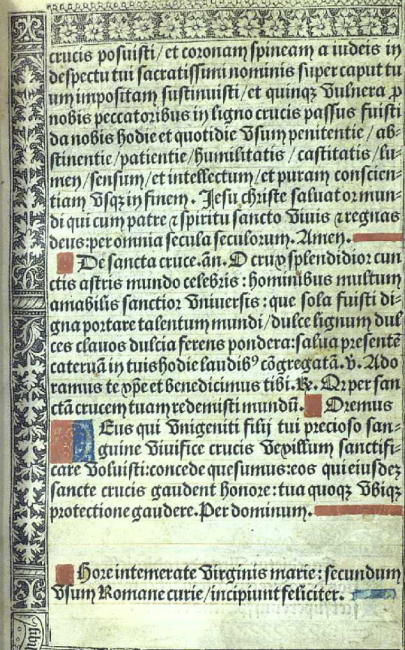 crucis posuisti/et coronam spineam a iudeis in
despectu tui sacratissimi nominis super caput tu
um impositam sustinuisti/et quinqꝫ vulnera ꝓ
nobis peccatoribus in ligno crucis passus fuisti
da nobis hodie et quotidie vsum penitentie/ab-
stinentie/patientie/humilitatis/castitatis/lu-
men/sensum/et intellectum/et puram conscien-
tiam vsqꝫ in finem. Jesu christe saluator mun-
di qui cum patre ⁊ spiritu sancto viuis ⁊ regnas
deus:per omnia secula seculorum. Amen.
De sancta cruce.an̄. O crux splendidior cun
ctis astris mundo celebris:hominibus multum
amabilis sanctior vniuersis:que sola fuisti di-
gna portare talentum mundi/dulce lignum dul
ces clauos dulcia ferens pondera:salua presentē
cateruā in tuis hodie laudibꝰ cōgregatā.v̄. Ado
ramus te xp̄e et benedicimus tibi.℞. Qꝛ per san
ctā crucem tuam redemisti mundū. Oremus
Deus qui vnigeniti filij tui precioso san-
guine viuifice crucis vexillum sanctifi-
care voluisti:concede quesumus:eos qui eiusdeꝫ
sancte crucis gaudent honore:tua quoqꝫ vbiqꝫ
protectione gaudere. Per dominum.
Hore intemerate virginis marie:secundum
vsum Romane curie/incipiunt feliciter.